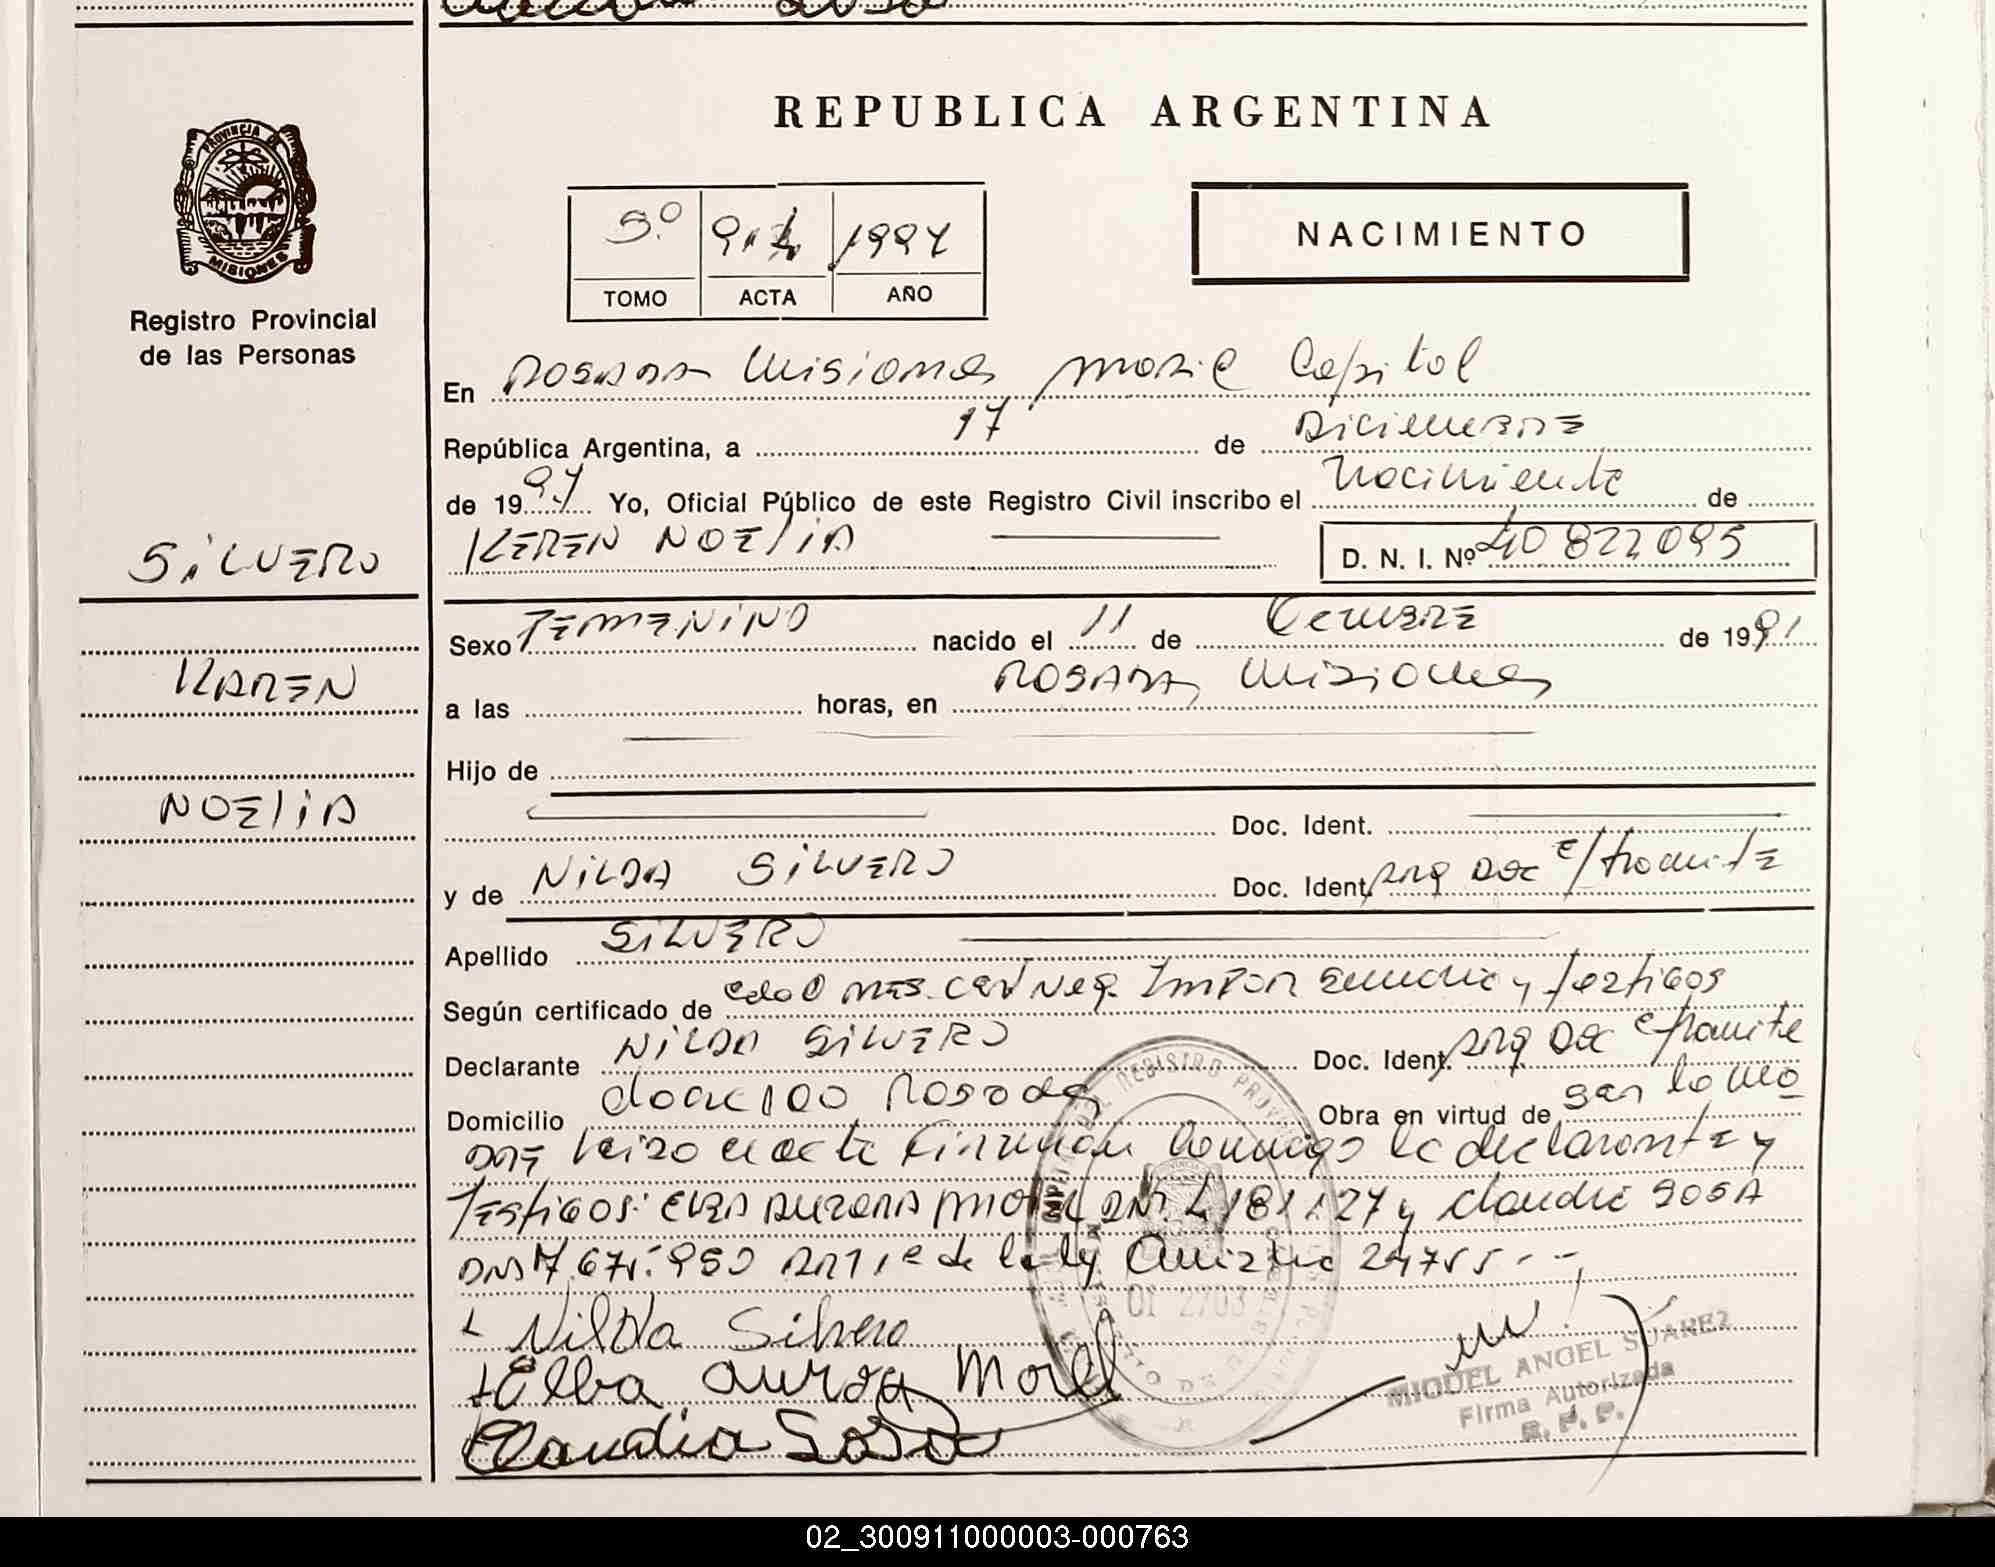 REPUBLICA ARGENTINA
PROVINCIA DE
MISIONES
Registro Provincial
de las Personas
5º 1997
TOMO ACTA AÑO
NACIMIENTO
En Posadas Misiones Capital
República Argentina, a 17 de Diciembre
de 1997 Yo, Oficial Público de este Registro Civil inscribo el Nacimiento de
KEREN NOELIA D. N. I. Nº 40822095
SILVERO
Sexo FEMENINO nacido el 11 de Octubre de 1991
KAREN
a las horas, en POSADAS Misiones
Hijo de
NOELIA
Doc. Ident.
y de NILDA SILVERO Doc. Ident. Arg Doc e/tramite
Apellido SILVERO
Según certificado de y testigos
Declarante NILDA SILVERO Doc. Ident. Arg Doc e/tramite
Domicilio Posadas Obra en virtud de
acta firman conmigo la declarante y
Testigos: AURORA y Claudia SOSA
de la ley
Nilda Silvero
Elba Aurora Morel
Claudia Sosa
MIGUEL ANGEL SUAREZ
Firma Autorizada
R. P. P.
02_300911000003-000763